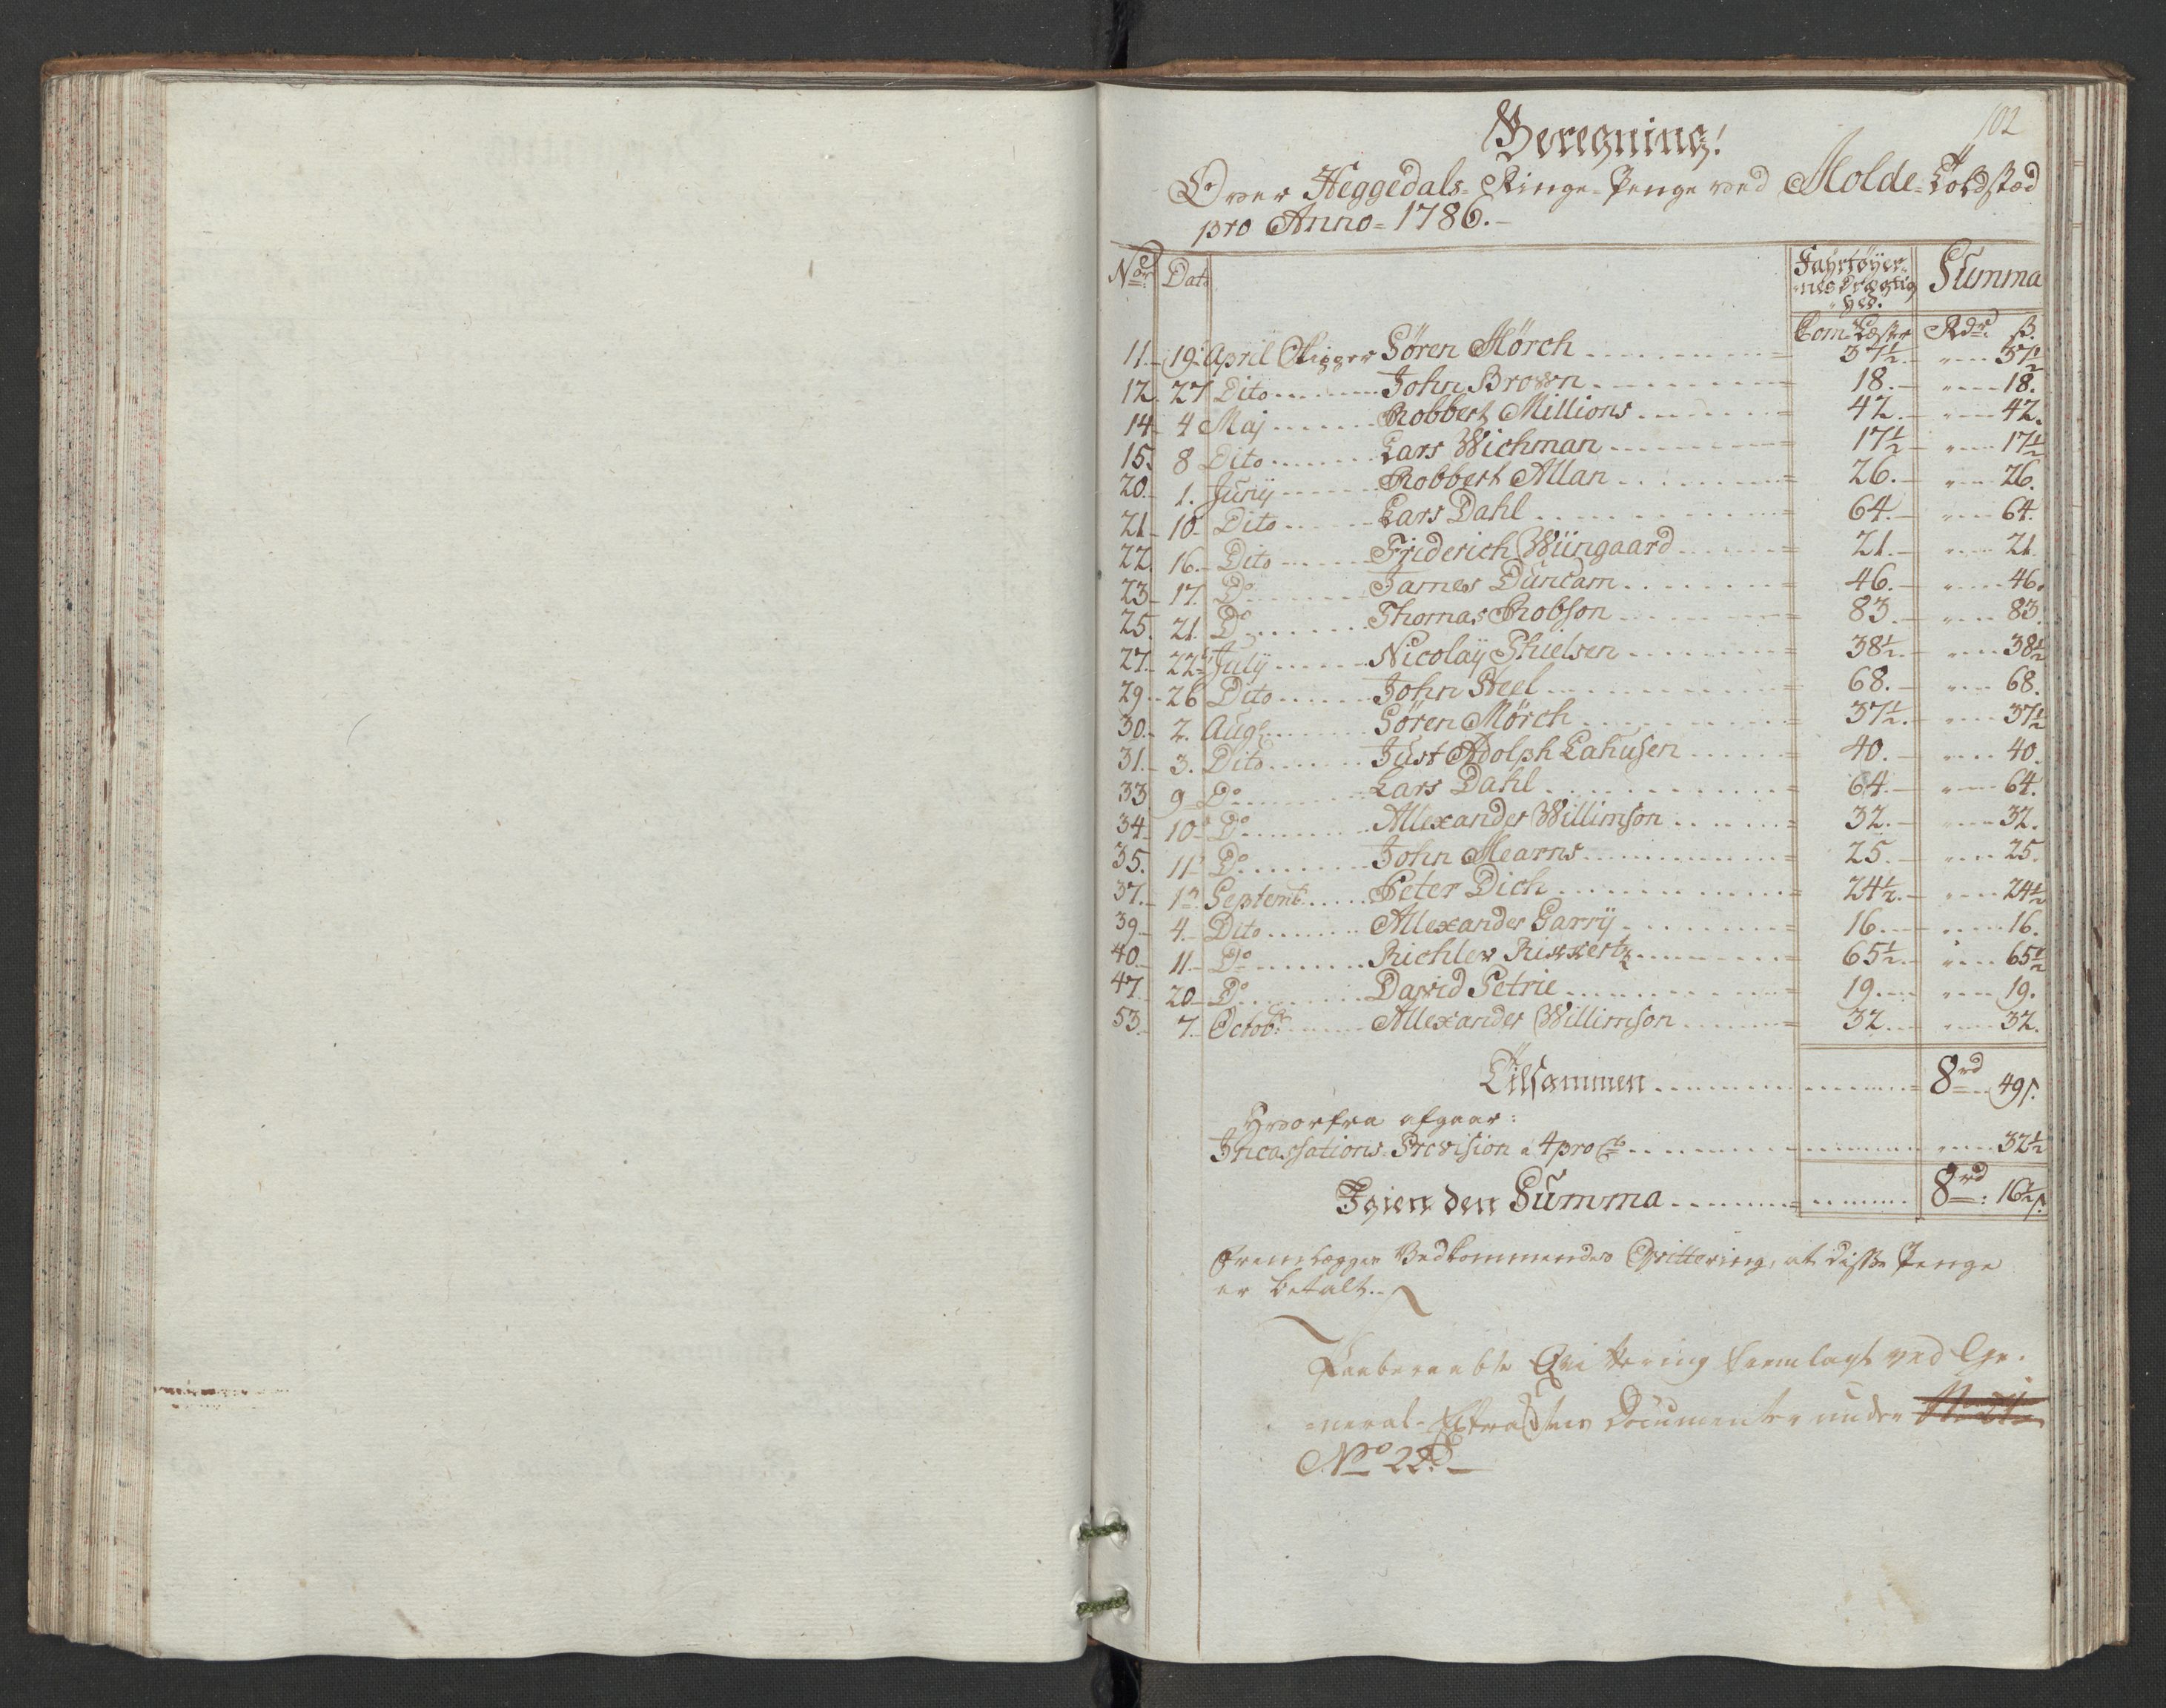 102
Beregning!
Over Heggedals-Ringe-Penge ved Molde-Toldsted
pro Anno=1786.-
No. Dato Fahrtøyer- Summa
nes Drægtig
hed.
Com Læster Rdr. ß.
11. 19. April Skipper Søren Mörch 37½ 37½
12. 27 Dito John Brown 18. 18.
14 4 Maj Robbert Millions 42. 42.
15. 8 Dito Lars Wichman 17½ 17½
20. 1. Junÿ Robbert Allan 26. 26.
21 10 Dito Lars Dahl 64. 64.
22. 16. Dito Friderich Wiingaard 21. 21.
23 17. Do James Duncam 46. 46.
25. 21. Do Thomas Robson 83. 83.
27. 22 Julÿ Nicolaÿ Thielsen 38½ 38½
29 26 Dito John Steel 68. 68.
30. 2. Augt. Søren Mörch 37½ 37½
31. 3. Dito Just Adolph Lahusen 40. 40.
33 9 Do Lars Dahl 64. 64.
34 10 Do Allexander Willimson 32. 32.
35. 11 Do John Mearns 25. 25.
37. 12. Septemb. Peter Dich 24½ 24½
39 4. Dito Allexander Garrÿ 16. 16.
40. 11. Do Richlev Rixxertz 65½ 65½
47. 20 Do David Petrie 19. 19.
53. 7. Octobr. Allexander Willimson 32. 32.
Tilsammen 8rd 49ß.
Hvorfra afgaar:
Incassations-Provision a 4 pro Cto 32½
Igien den Summa 8rd: 16½ß.
Fremlægger Vedkommendes Qvittering, at disse Penge
er betalt.
Paaberaabte Qvittering fremlagt ved Ge-
=neral-Extractens Documenter under
No 22.